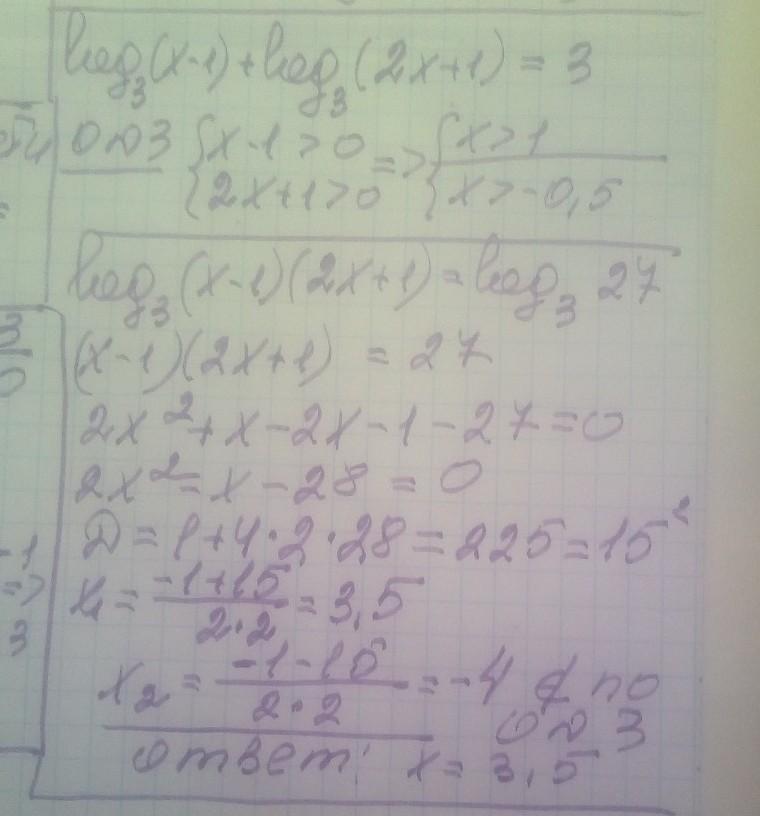 log₃(x-1)+log₃(2x+1) = 3
ОДЗ {x-1>0 => {x>1
{2x+1>0 {x>-0,5
log₃(x-1)(2x+1)=log₃ 27
(x-1)(2x+1) = 27
2x²+x-2x-1-27=0
2x²-x-28 = 0
Д=1+4·2·28=225=15²
x₁= (-1+15)/(2·2) = 3,5
x₂ = (-1-15)/(2·2) = -4 ∉ по
ОДЗ
Ответ: x= 3,5